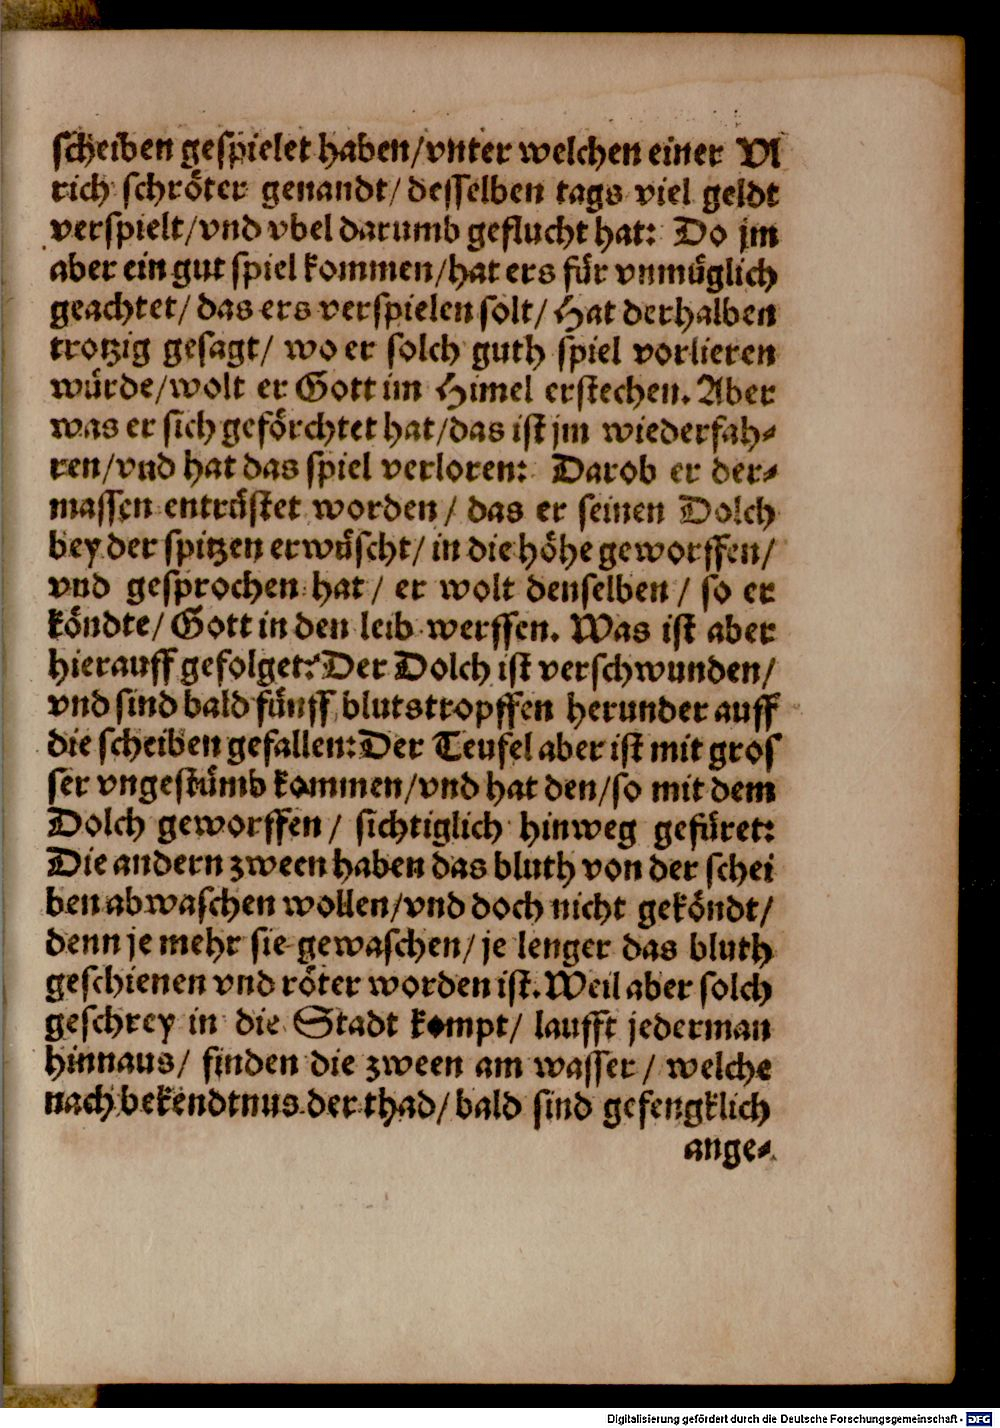 scheiben gespielet haben/vnter welchen einer Vl
rich schröter genandt/ desselben tags viel geldt
verspielt/vnd vbel darumb geflucht hat: Do jm
aber ein gut spiel kommen/hat ers für vnmüglich
geachtet/ das ers verspielen solt/ Hat derhalben
trotzig gesagt/ wo er solch guth spiel vorlieren
würde/wolt er Gott im Himel erstechen. Aber
was er sich geförchtet hat/das ist jm wiederfah-
ren/vnd hat das spiel verloren: Darob er der-
massen entrüstet worden/ das er seinen Dolch
bey der spitzen erwüscht/ in die höhe geworffen/
vnd gesprochen hat/ er wolt denselben/ so er
köndte/ Gott in den leib werffen. Was ist aber
hierauff gefolget? Der Dolch ist verschwunden/
vnd sind bald fünff blutstropffen herunder auff
die scheiben gefallen: Der Teufel aber ist mit gros
ser vngestümb kommen/vnd hat den/so mit dem
Dolch geworffen/ sichtiglich hinweg gefüret:
Die andern zween haben das bluth von der schei
ben abwaschen wollen/vnd doch nicht geköndt/
denn je mehr sie gewaschen/ je lenger das bluth
geschienen vnd röter worden ist. Weil aber solch
geschrey in die Stadt kompt/ laufft jederman
hinnaus/ finden die zween am wasser/ welche
nach bekendtnus der thad/ bald sind gefengklich
ange-
Digitalisierung gefördert durch die Deutsche Forschungsgemeinschaft - DFG